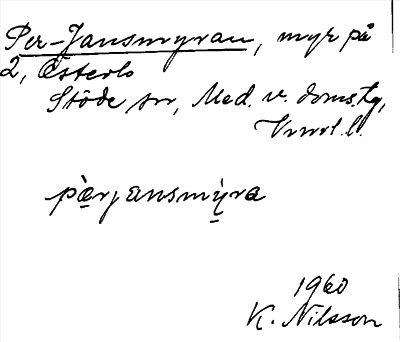 Per-Jansmyran, myr på
2, Österlo
Stöde sn, Med. v. doms.tg,
Vnrl. l.
pàrjansmỳra
1960
K. Nilsson